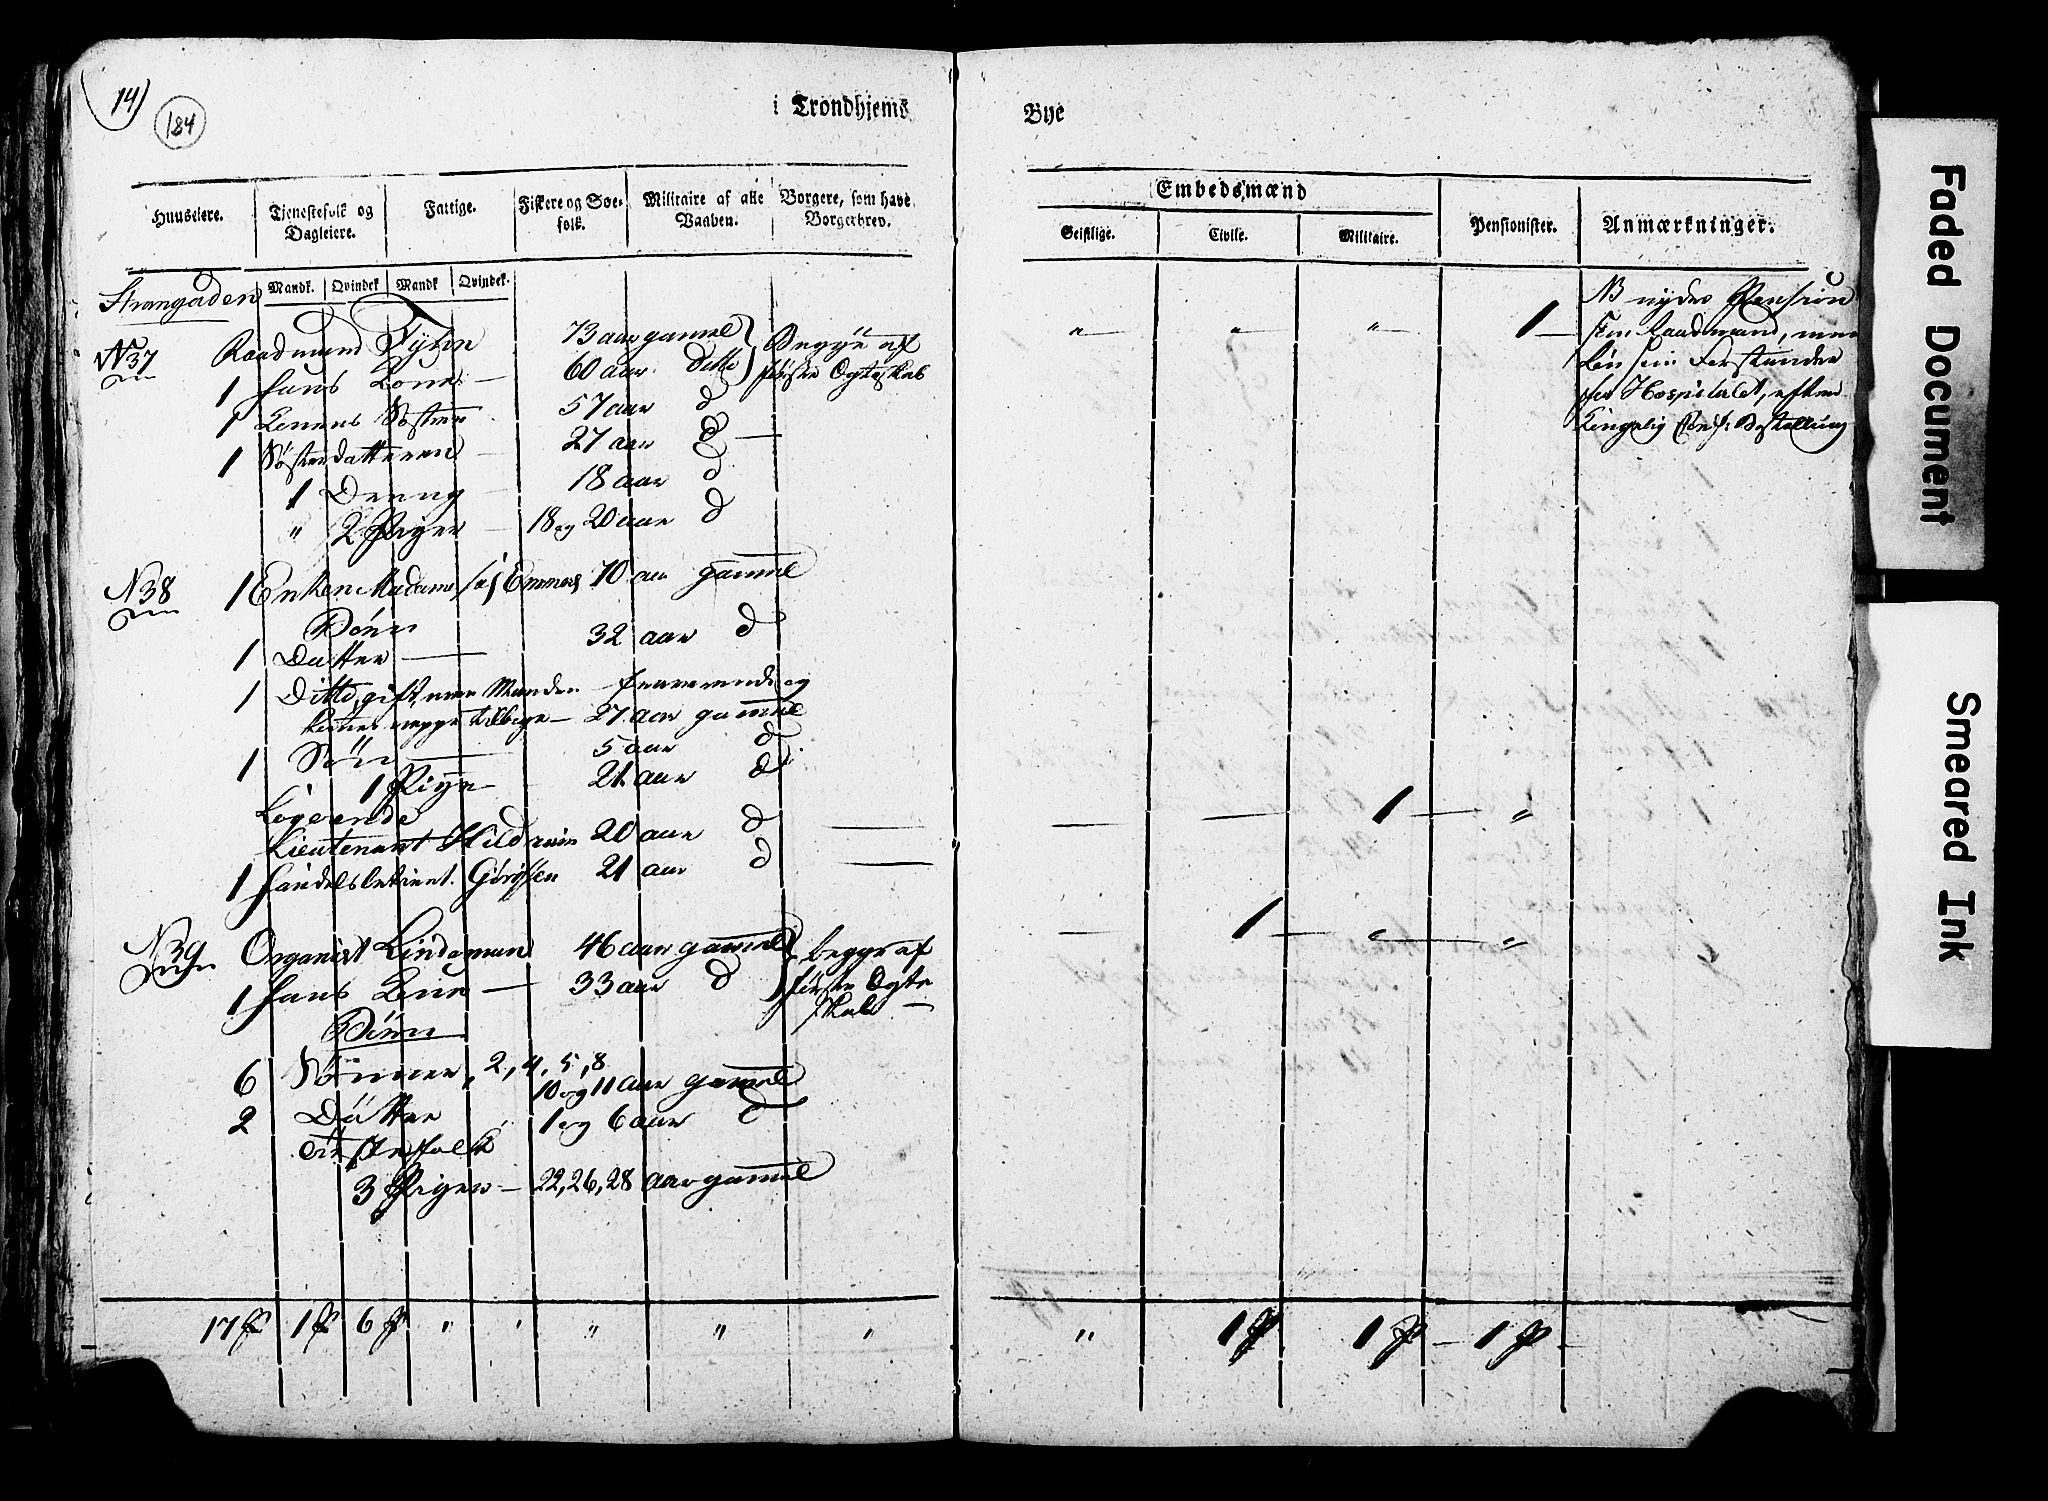 14)
184
i Trondhjems
Bye
Huuseiere.
Tjenestefolk og Dagleiere.
Fattige.
Fiskere og Søefolk.
Militaire af alle Vaaben.
Borgere, som have Borgerbrev.
Embedsmænd
Geistlige.
Civile.
Militaire.
Pensionister.
Anmærkninger.
Mandk. Qvindek Mandk Qvindek.
Strangaden
N 37 Raadmand 73 aar gammel Begge af
1 hans Kone — 60 aar ditto første Ogteskab
1 Konens Søster 57 aar d
1 Søsterdatteren — 27 aar d —
1 Dreng 18 aar d
" 2 Piger — 18 og 20 aar d
" " " 1
NB nyder Pension
som Raadmand, men
Løn som Forstander
for Hospitalet, efter
Kongelig Bestalling
N 38 1 Enken Madame 70 aar gammel
Børn
1 Datter — 32 aar d
1 Ditto, gift, men Manden — fraværende og
neppe tilbage — 27 aar gammel
1 Søn — 5 aar d
1 Pige — 21 aar d
Logerende
Lieutenant 20 aar d
1 "
1 Handelsbetient. 21 aar d
N 39 Organist Lindeman 46 aar gammel begge af
1 hans Kone — 33 aar d første Ogte
skab —
1 " "
Børn
6 Sønner, 2, 4, 5, 8
10 og 11 aar gammel
2 Døttre 1 og 6 aar d
3 Piger — 22, 26, 28 aar gammel
17 P 1 P 6 P " " " " "
" 1 P 1 P — 1 P
Faded Document
Smeared Ink